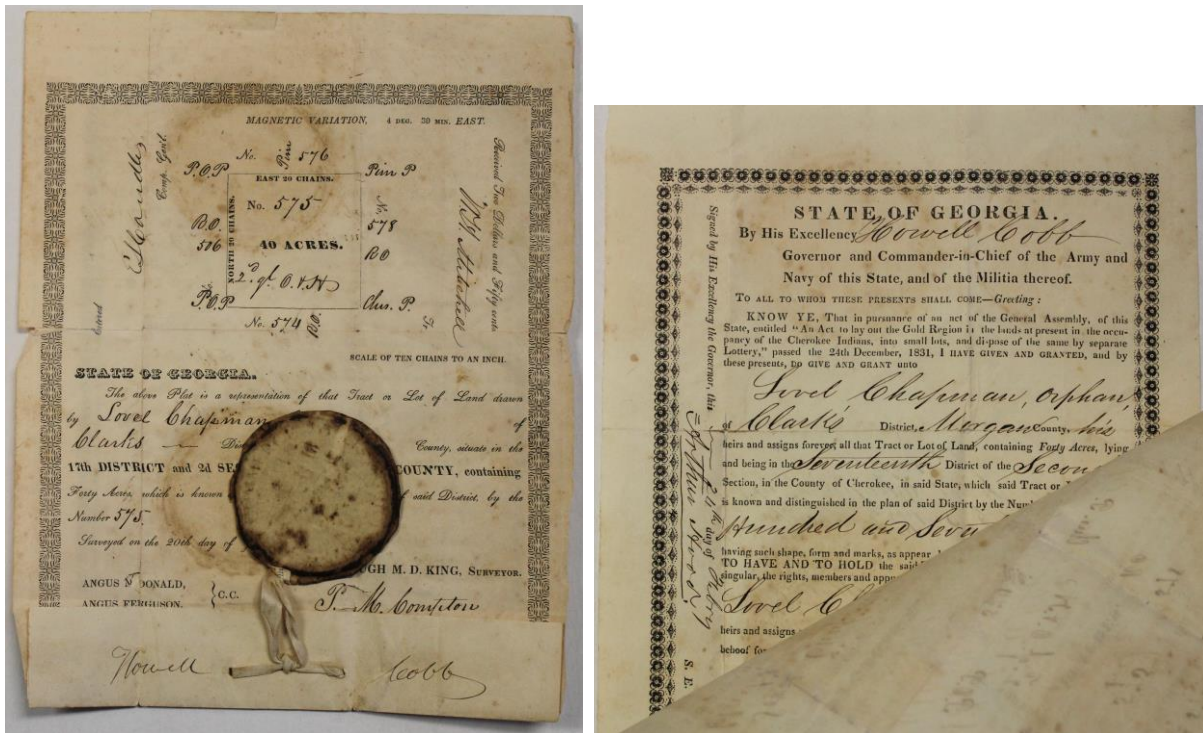 MAGNETIC VARIATION, 4 DEG. 30 MIN. EAST.
No. Pin 576
P.O.P
Pinn P
EAST 20 CHAINS.
No. 575
NORTH 20 CHAINS.
B.O.
506
40 ACRES.
No.
578
BO
2d. ql. O. & H
P.O.P
Ches. P.
No. 574
B.O.
Comp. Genl.
Received Two Dollars and Fifty cents
Tr.
SCALE OF TEN CHAINS TO AN INCH.
STATE OF GEORGIA.
The above Plat is a representation of that Tract or Lot of Land drawn
by Lovel Chapman of
Clarks County, situate in the
17th DISTRICT and 2d COUNTY, containing
Forty Acres, which is known of said District by the
Number 575.
Surveyed on the 20th day of
M. D. KING, SURVEYOR.
ANGUS
C.C.
ANGUS FERGUSON,
P. M. Compton
Howell Cobb
STATE OF GEORGIA.
By His Excellency Howell Cobb
Governor and Commander-in-Chief of the Army and
Navy of this State, and of the Militia thereof.
TO ALL TO WHOM THESE PRESENTS SHALL COME—Greeting:
KNOW YE, That in pursuance of an act of the General Assembly, of this
State, entitled "An Act to lay out the Gold Region in the lands at present in the occu-
pancy of the Cherokee Indians, into small lots, and dispose of the same by separate
Lottery," passed the 24th December, 1831, I HAVE GIVEN AND GRANTED, and by
these presents, DO GIVE AND GRANT unto
Lovel Chapman, orphan,
of Clark's District, Morgan County, his
heirs and assigns forever, all that Tract or Lot of Land, containing Forty Acres, lying
and being in the Seventeenth District of the
Section, in the County of Cherokee, in said State, which said Tract or
is known and distinguished in the plan of said District by the
Hundred and
having such shape, form and marks, as appear
TO HAVE AND TO HOLD the said
singular, the rights, members and
Lovel
heirs and assigns
behoof
Signed by His Excellency the Governor, this 24th day of
S. E.